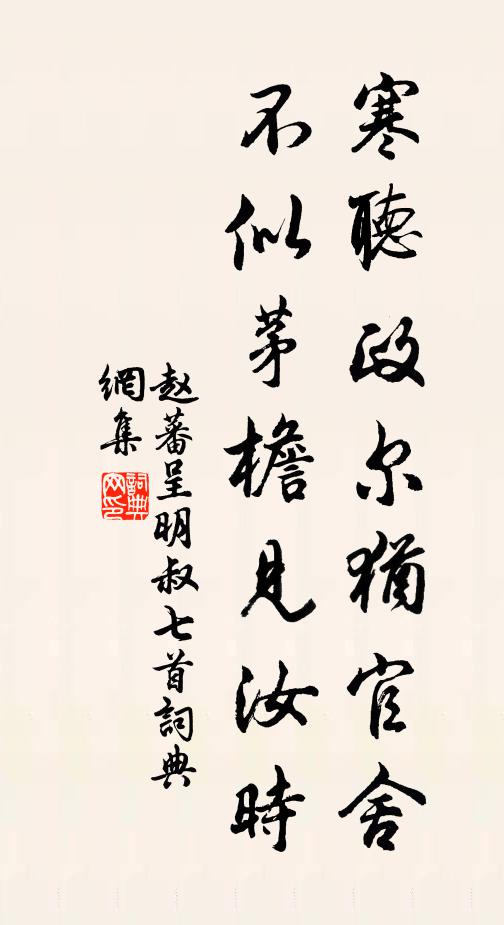 寒聴政尔猶官舎
不似茅檐見汝時
赵蕃呈明叔七首詞典
網集
詞典
网印